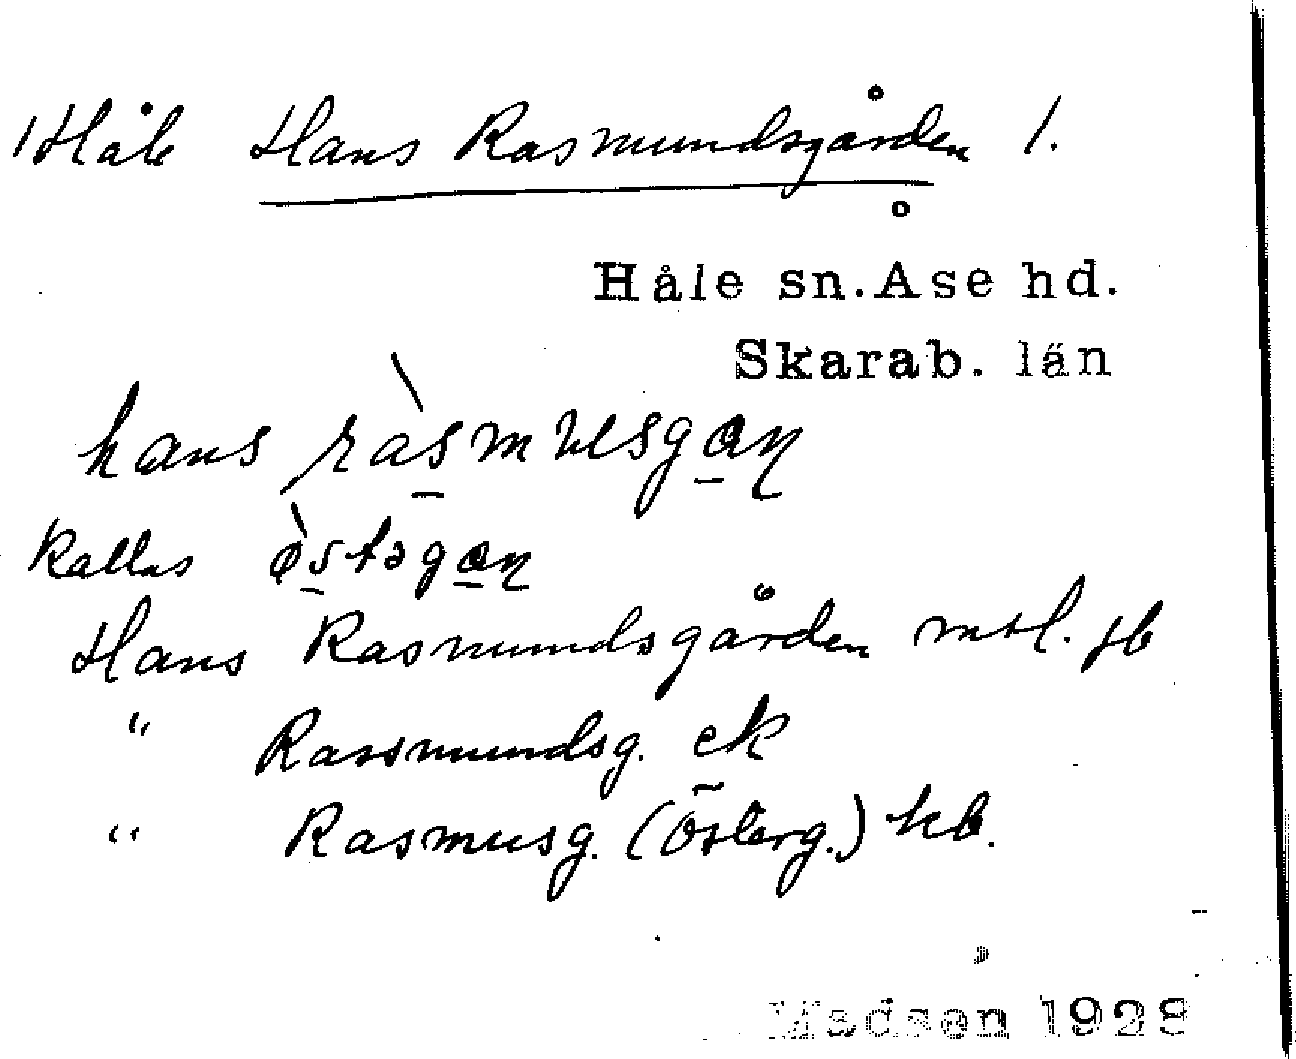 1 Håle Hans Rasmundsgården 1.
Håle sn. Åse hd.
Skarab. län
hans ràsmusgaɳ
kallas ø̀stəgaɳ
Hans Rasmundsgården mtl. jb
" Rassmundsg. ek
" Rasmusg. (Österg.) kb.
Madsen 1928